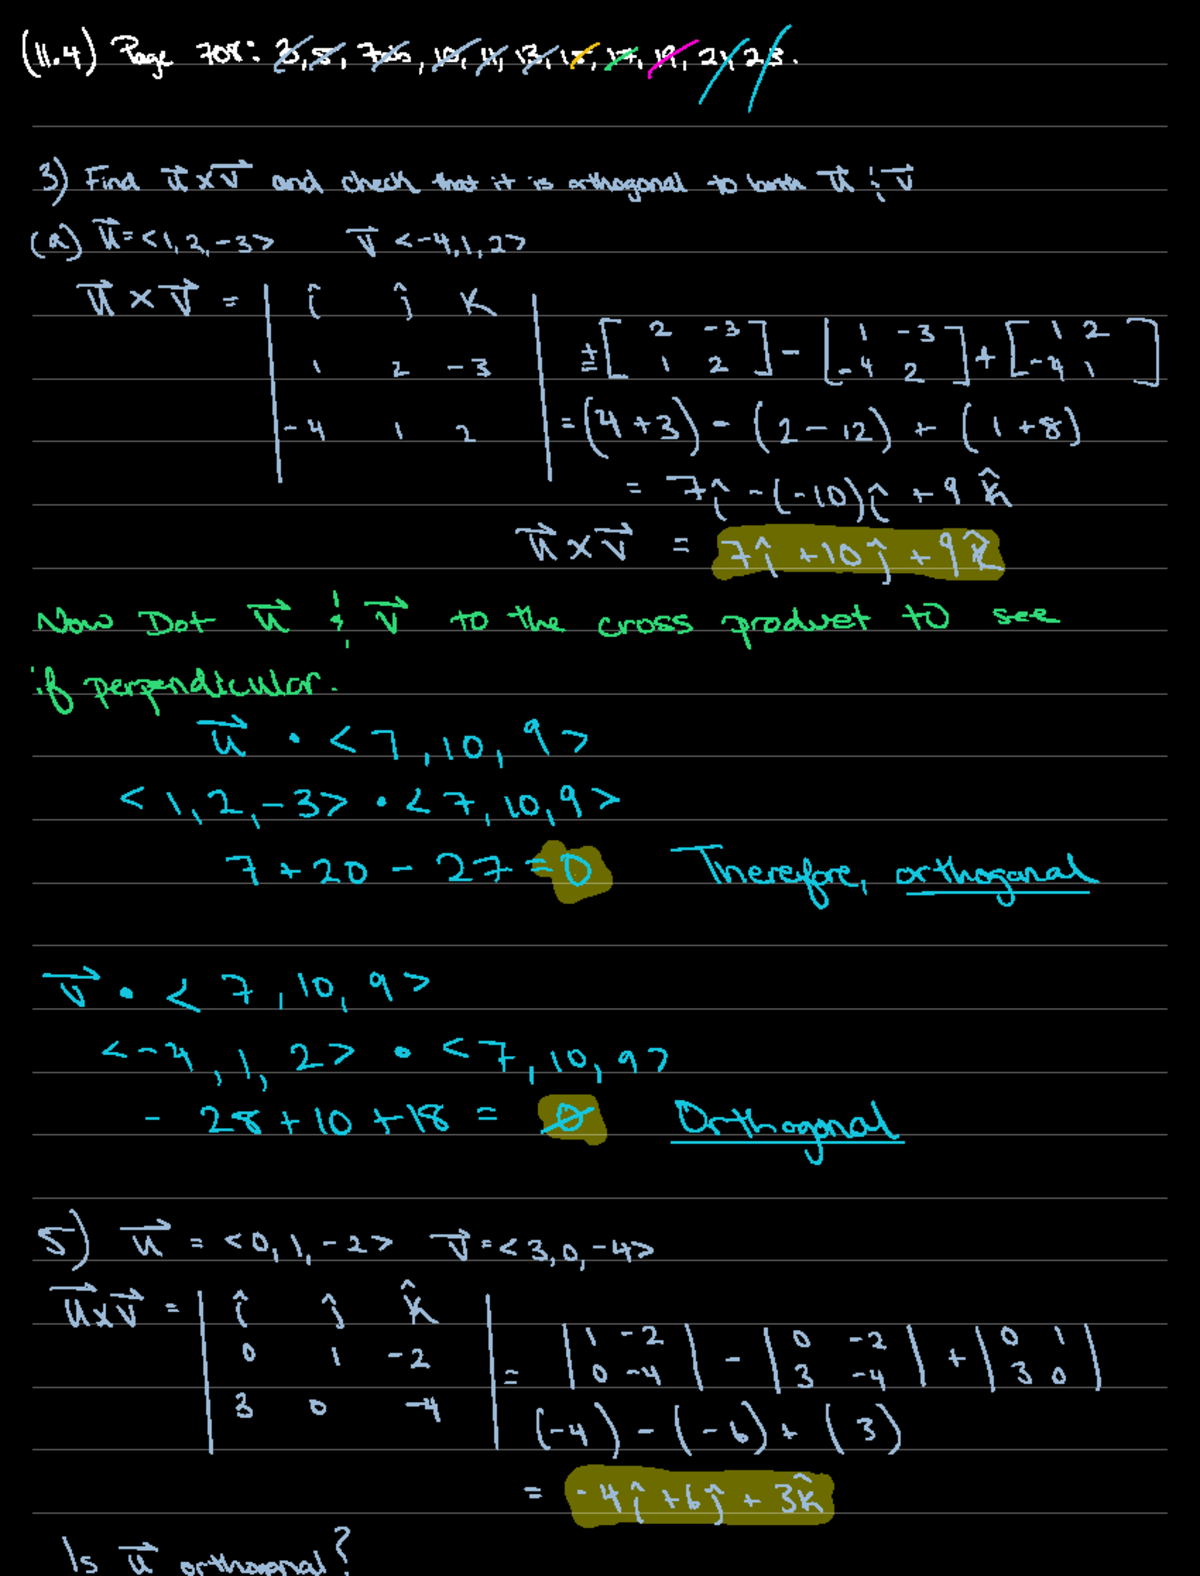 (11.4) Page 708: 3, 5, 7, 10, 11, 13, 15, 17, 19, 21, 23.
3) Find u⃗ x v⃗ and check that it is orthogonal to both u⃗ & v⃗
(a) u⃗ = <1, 2, -3>   v⃗ <-4, 1, 2>
u⃗ x v⃗ = | î ĵ k |
| 1 2 -3 | = + [ 2 -3 ] - [ 1 -3 ] + [ 1 2 ]
[ 1 2 ] [ -4 2 ] [ -4 1 ]
| -4 1 2 | = (4 + 3) - (2 - 12) + (1 + 8)
= 7î - (-10)î + 9 k̂
u⃗ x v⃗ = 7î + 10ĵ + 9k̂
Now Dot u⃗ & v⃗ to the cross product to see
if perpendicular.
u⃗ • <7, 10, 9>
<1, 2, -3> • <7, 10, 9>
7 + 20 - 27 = 0   Therefore, orthogonal
v⃗ • <7, 10, 9>
<-4, 1, 2> • <7, 10, 9>
- 28 + 10 + 18 = 0   Orthogonal
5) u⃗ = <0, 1, -2>   v⃗ = <3, 0, -4>
u⃗ x v⃗ = | î ĵ k̂ |
| 0 1 -2 | = | 1 -2 | - | 0 -2 | + | 0 1 |
| 0 -4 | | 3 -4 | | 3 0 |
| 3 0 -4 | (-4) - (-6) + (3)
= -4î + 6ĵ + 3k̂
Is u⃗ orthogonal?